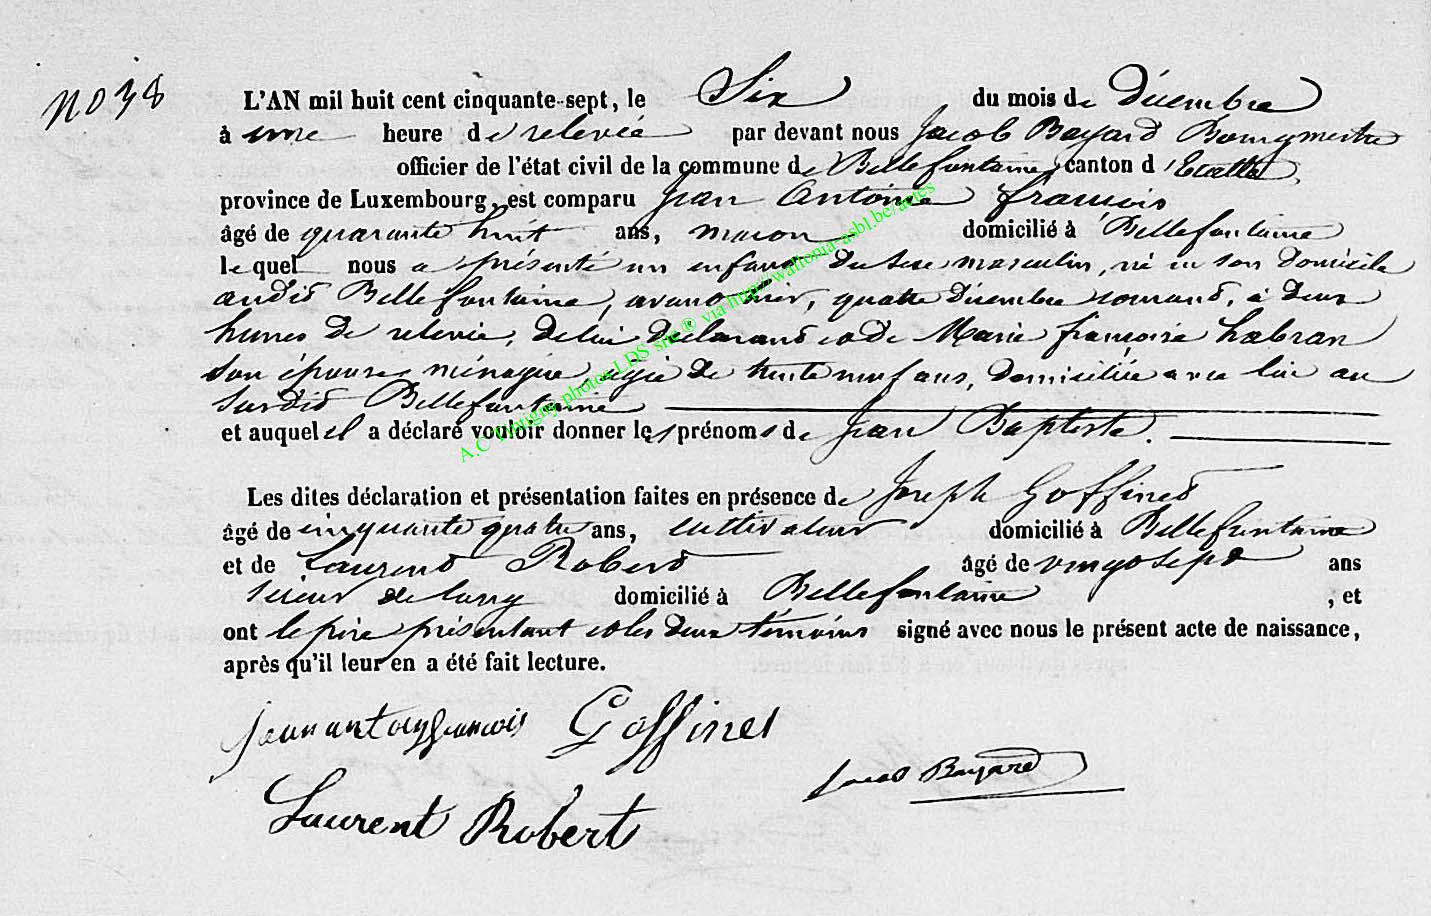 No 38
L'AN mil huit cent cinquante-sept, le Six du mois de Décembre
à une heure de relevée par devant nous Jacob Bayard Bourgmestre
officier de l'état civil de la commune de Bellefontaine, canton d'Etalle,
province de Luxembourg, est comparu Jean Antoine françois
âgé de quarante huit ans, maçon domicilié à Bellefontaine
lequel nous a présenté un enfant du sexe masculin, né en son domicile
audit Bellefontaine, avant hier, quatre Décembre courant, à deux
heures de relevée, de lui déclarant et de Marie françoise habran
son épouse, ménagère, agée de trente neuf ans, domiciliée avec lui au
surdit Bellefontaine
et auquel il a déclaré vouloir donner les prénoms de Jean Baptiste.
Les dites déclaration et présentation faites en présence de Joseph Goffinet
âgé de cinquante quatre ans, cultivateur domicilié à Bellefontaine
et de Laurent Robert âgé de vingt sept ans
scieur de long domicilié à Bellefontaine , et
ont le père présentant et les deux témoins signé avec nous le présent acte de naissance,
après qu'il leur en a été fait lecture.
jean antoy francois Goffinet
Jacob Bayard
Laurent Robert
A.C Tintigny, photos LDS sur ® via http://wallonia-asbl.be/actes